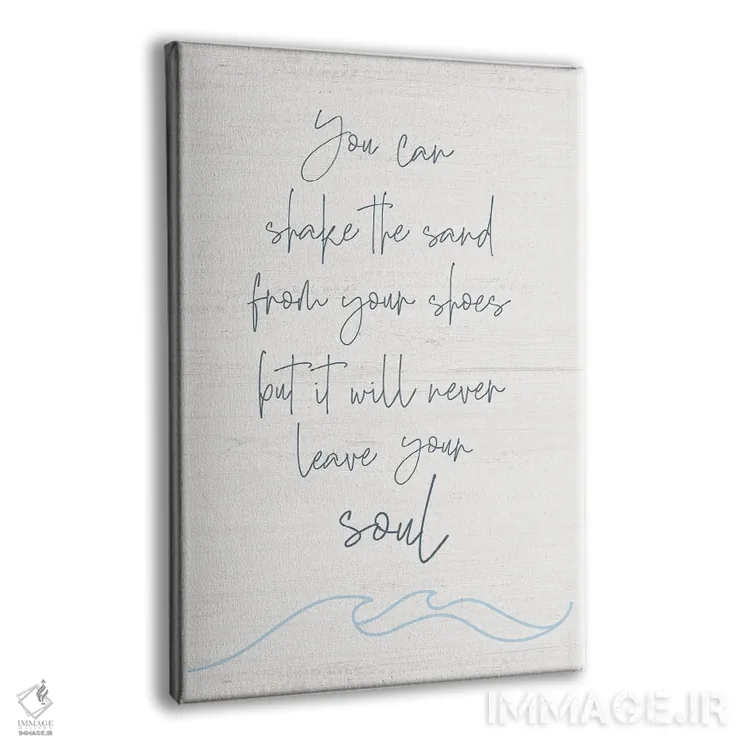 You can
shake the sand
from your shoes
but it will never
leave your
soul
IMMAGE
IMMAGE.IR
IMMAGE.IR